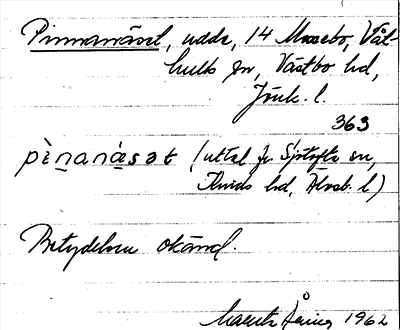 Pinnanäset, udde, 14 Mosebo, Våt-
hults sn, Västbo hd,
Jönk. l.
363
pìnanä́sət (uttal fr. Sjötofta sn,
Kinds hd, Älvsb. l)
Betydelsen okänd.
1962